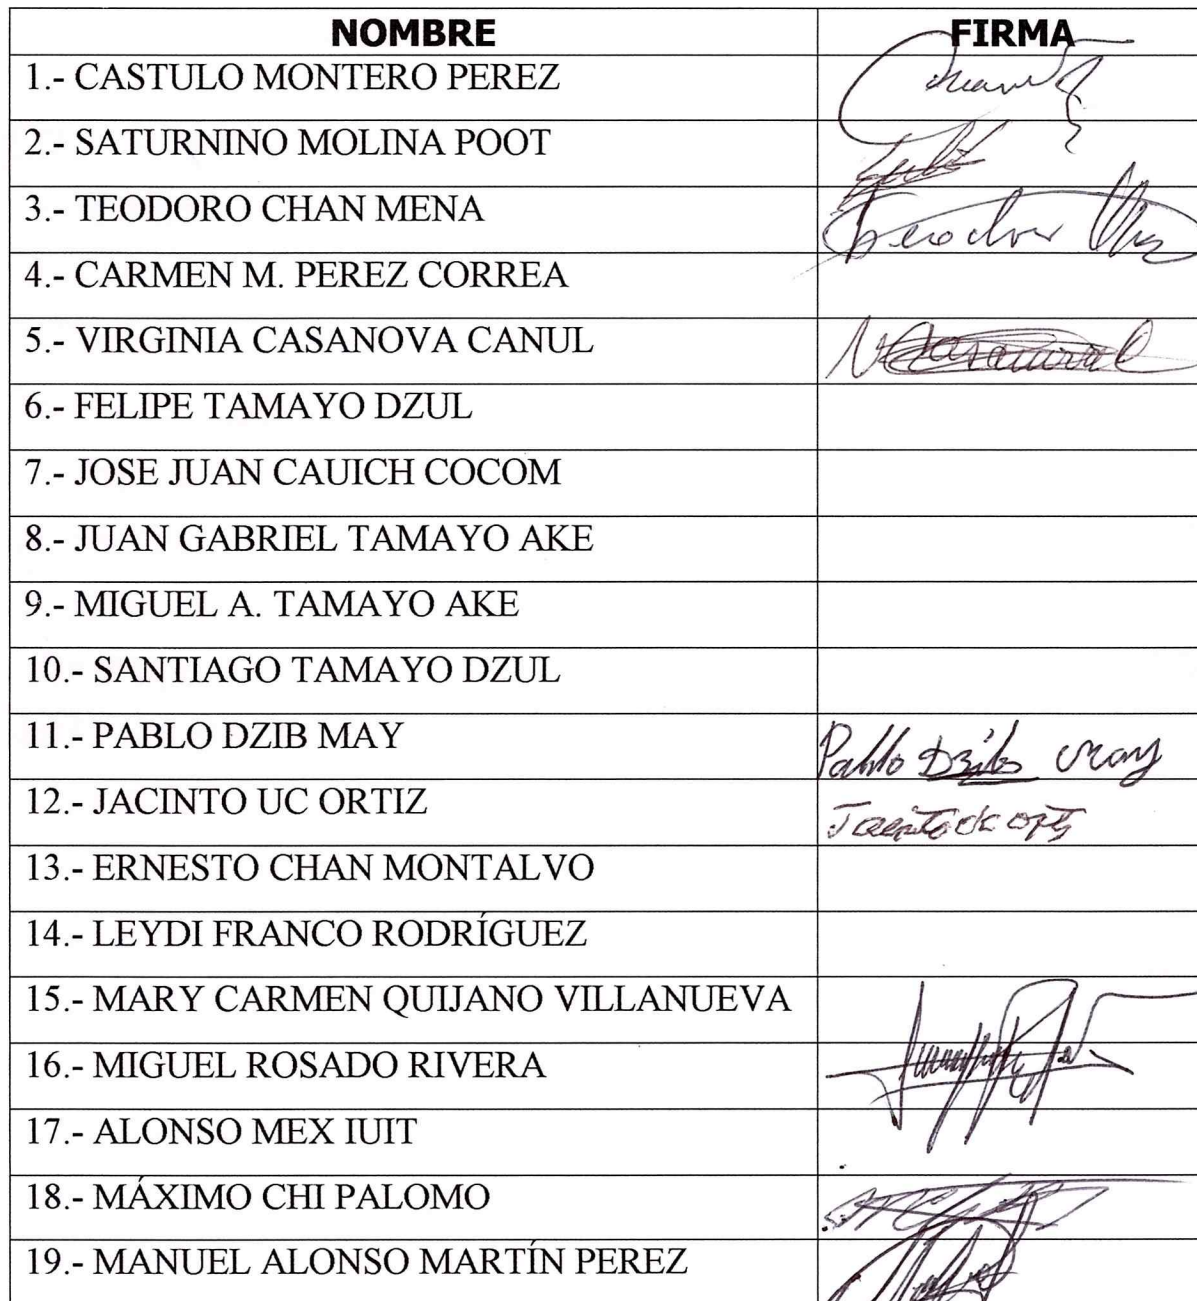 NOMBRE FIRMA
1.- CASTULO MONTERO PEREZ
2.- SATURNINO MOLINA POOT
3.- TEODORO CHAN MENA
4.- CARMEN M. PEREZ CORREA
5.- VIRGINIA CASANOVA CANUL
6.- FELIPE TAMAYO DZUL
7.- JOSE JUAN CAUICH COCOM
8.- JUAN GABRIEL TAMAYO AKE
9.- MIGUEL A. TAMAYO AKE
10.- SANTIAGO TAMAYO DZUL
11.- PABLO DZIB MAY Pablo Dzib May
12.- JACINTO UC ORTIZ
13.- ERNESTO CHAN MONTALVO
14.- LEYDI FRANCO RODRÍGUEZ
15.- MARY CARMEN QUIJANO VILLANUEVA
16.- MIGUEL ROSADO RIVERA
17.- ALONSO MEX IUIT
18.- MÁXIMO CHI PALOMO
19.- MANUEL ALONSO MARTÍN PEREZ